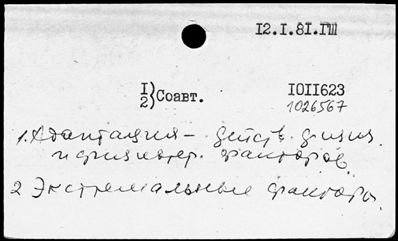 12.I.81.ГШ
1)
2) Соавт.
IOII623
1026567
1. Адаптация – действ. физич.
и физиотер. факторов
2 Экстремальные факторы